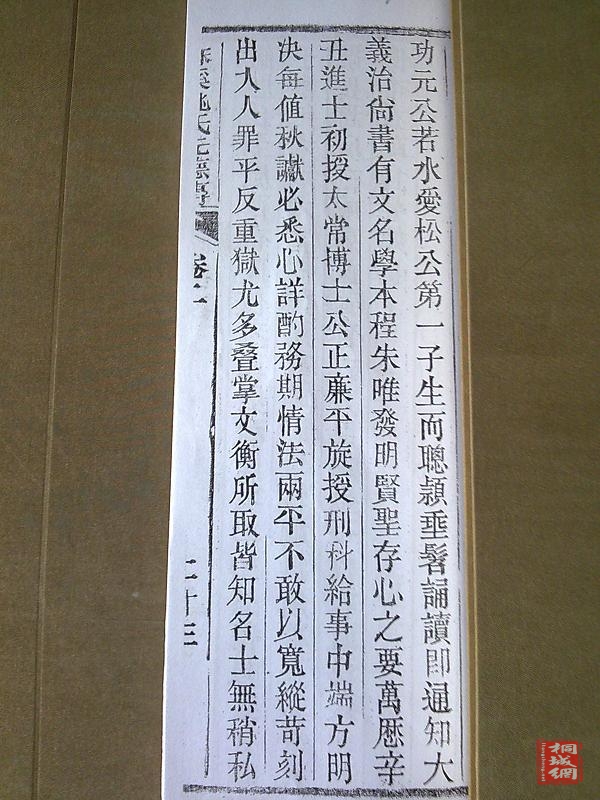 功元公若水愛松公第一子生而聰潁垂髫誦讀卽通知大
義治尙書有文名學本程朱唯發明賢聖存心之要萬厯辛
丑進士初授太常博士公正廉平旋授刑科給事中端方明
決每值秋讞必悉心詳酌務期情法兩平不敢以寬縱苛刻
出入人罪平反重獄尤多叠掌文衡所取皆知名士無稍私
氏元德
卷二
二十三
桐城網